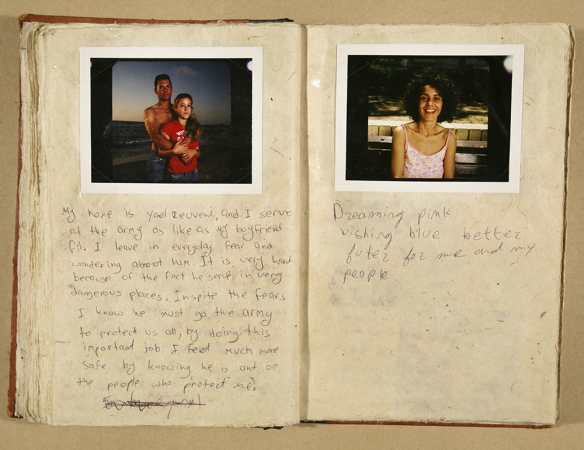 My name is Yael Reuven, and I serve
at the army as like as my boyfriend
fil. I leave in everyday fear and
wondering about him It is very hard
because of the fact he serve in very
dangerous places. Inspite the fears
I know he must go the army
to protect us all, by doing this
important job I feel much more
safe by knowing he is one of
the people who protect me!
Dreaming pink
wishing blue better
futer for me and my
people